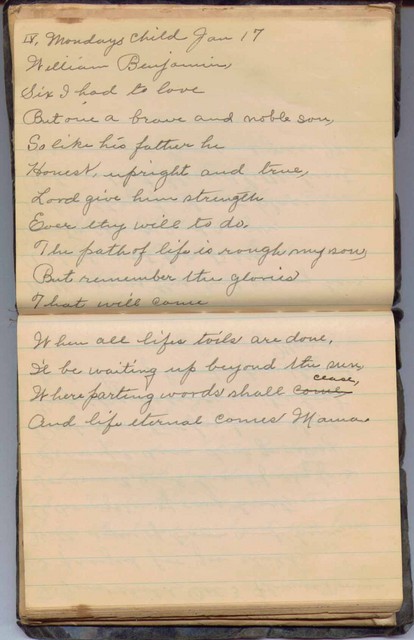 IV. Mondays Child Jan 17
William Benjamin,
Six I had to love
But one a brave and noble son,
So like his father he
Honest, upright and true,
Lord give him strength
Ever thy will to do.
The path of life is rough my son,
But remember the glories
That will come
When all lifes toils are done,
I'll be waiting up beyond the sun,
Where parting words shall come cease,
And life eternal comes Mama.